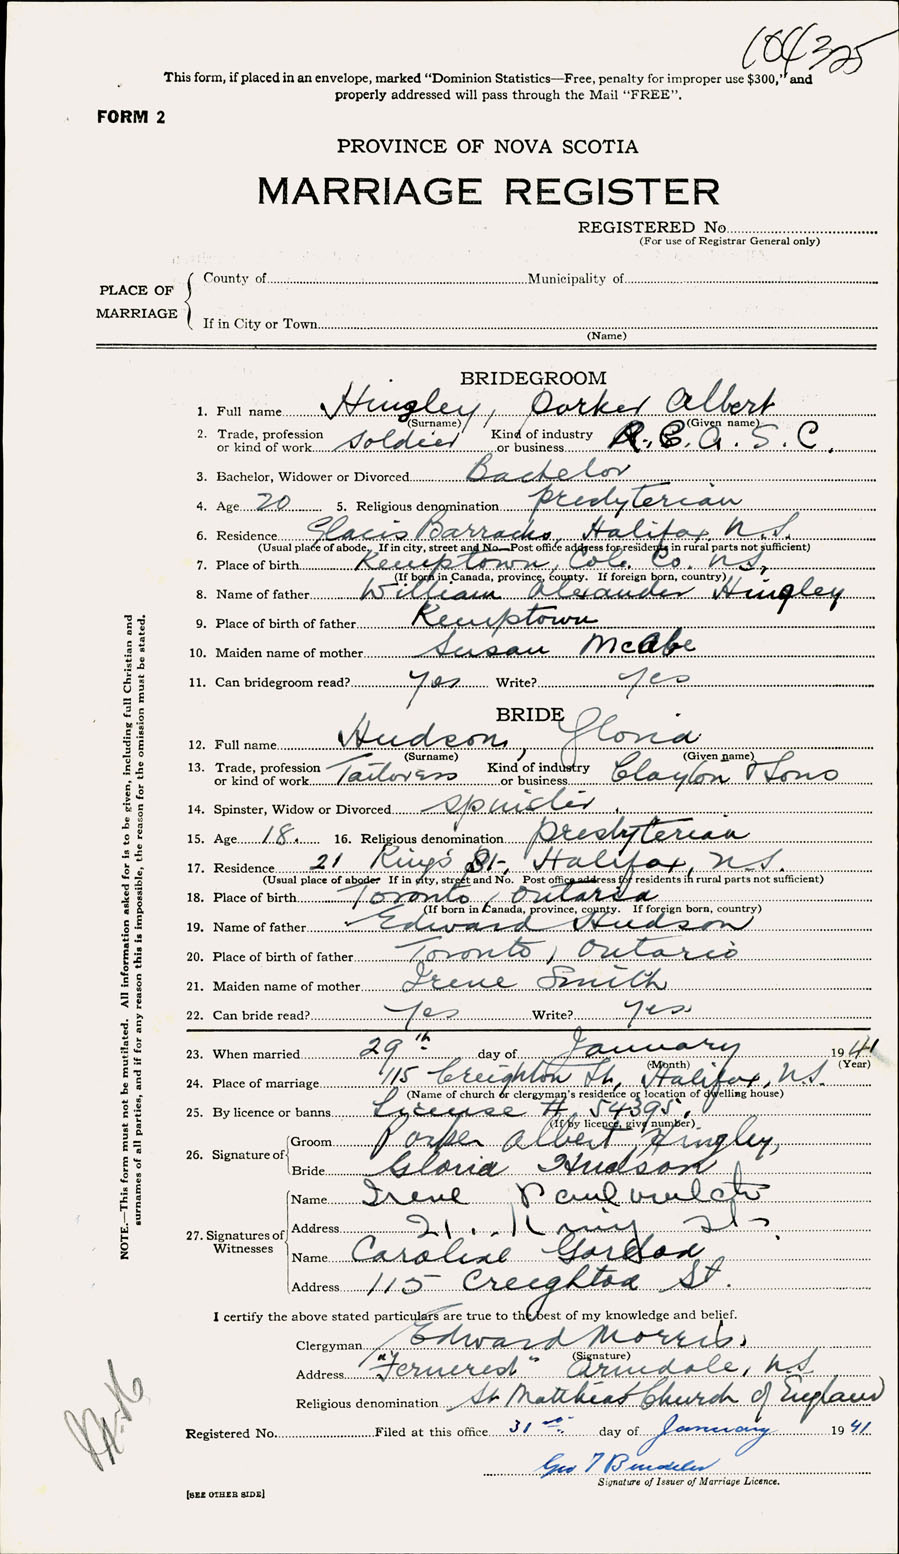 104325
This form, if placed in an envelope, marked "Dominion Statistics—Free, penalty for improper use $300," and
properly addressed will pass through the Mail "FREE".
FORM 2
PROVINCE OF NOVA SCOTIA
MARRIAGE REGISTER
REGISTERED No.
(For use of Registrar General only)
PLACE OF MARRIAGE
County of Municipality of
If in City or Town
(Name)
BRIDEGROOM
1. Full name Hingley, Porker Albert
(Surname) (Given name)
2. Trade, profession or kind of work Soldier Kind of industry or business R.C.A.S.C.
3. Bachelor, Widower or Divorced Bachelor
4. Age 20 5. Religious denomination Presbyterian
6. Residence Glacis Barracks, Halifax, N.S.
(Usual place of abode. If in city, street and No. Post office address for residents in rural parts not sufficient)
7. Place of birth Kemptown, Col. Co. N.S.
(If born in Canada, province, county. If foreign born, country)
8. Name of father William Alexander Hingley
9. Place of birth of father Kemptown
10. Maiden name of mother Susan McAbe
11. Can bridegroom read? yes Write? yes
BRIDE
12. Full name Hudson, Gloria
(Surname) (Given name)
13. Trade, profession or kind of work Tailoress Kind of industry or business Clayton & Sons
14. Spinster, Widow or Divorced Spinster.
15. Age 18. 16. Religious denomination Presbyterian
17. Residence 21 King's St., Halifax, N.S.
(Usual place of abode. If in city, street and No. Post office address for residents in rural parts not sufficient)
18. Place of birth Toronto, Ontario
(If born in Canada, province, county. If foreign born, country)
19. Name of father Edward Hudson
20. Place of birth of father Toronto, Ontario
21. Maiden name of mother Irene Smith
22. Can bride read? Yes Write? Yes
23. When married 29th day of January 1941
(Month) (Year)
24. Place of marriage 115 Creighton St., Halifax, N.S.
(Name of church or clergyman's residence or location of dwelling house)
25. By licence or banns License # 54395.
(If by licence, give number)
26. Signature of
Groom Porker Albert Hingley,
Bride Gloria Hudson
27. Signatures of Witnesses
Name Irene
Address 21. King St.
Name Caroline Gordon
Address 115 Creighton St.
I certify the above stated particulars are true to the best of my knowledge and belief.
Clergyman Edward Morris.
(Signature)
Address "Ferncrest" Armdale, N.S.
Religious denomination St Matthias Church of England
Registered No. Filed at this office 31 day of January 1941
Geo T
Signature of Issuer of Marriage Licence.
[SEE OTHER SIDE]
NOTE.—This form must not be mutilated. All information asked for is to be given, including full Christian and
surnames of all parties, and if for any reason this is impossible, the reason for the omission must be stated.